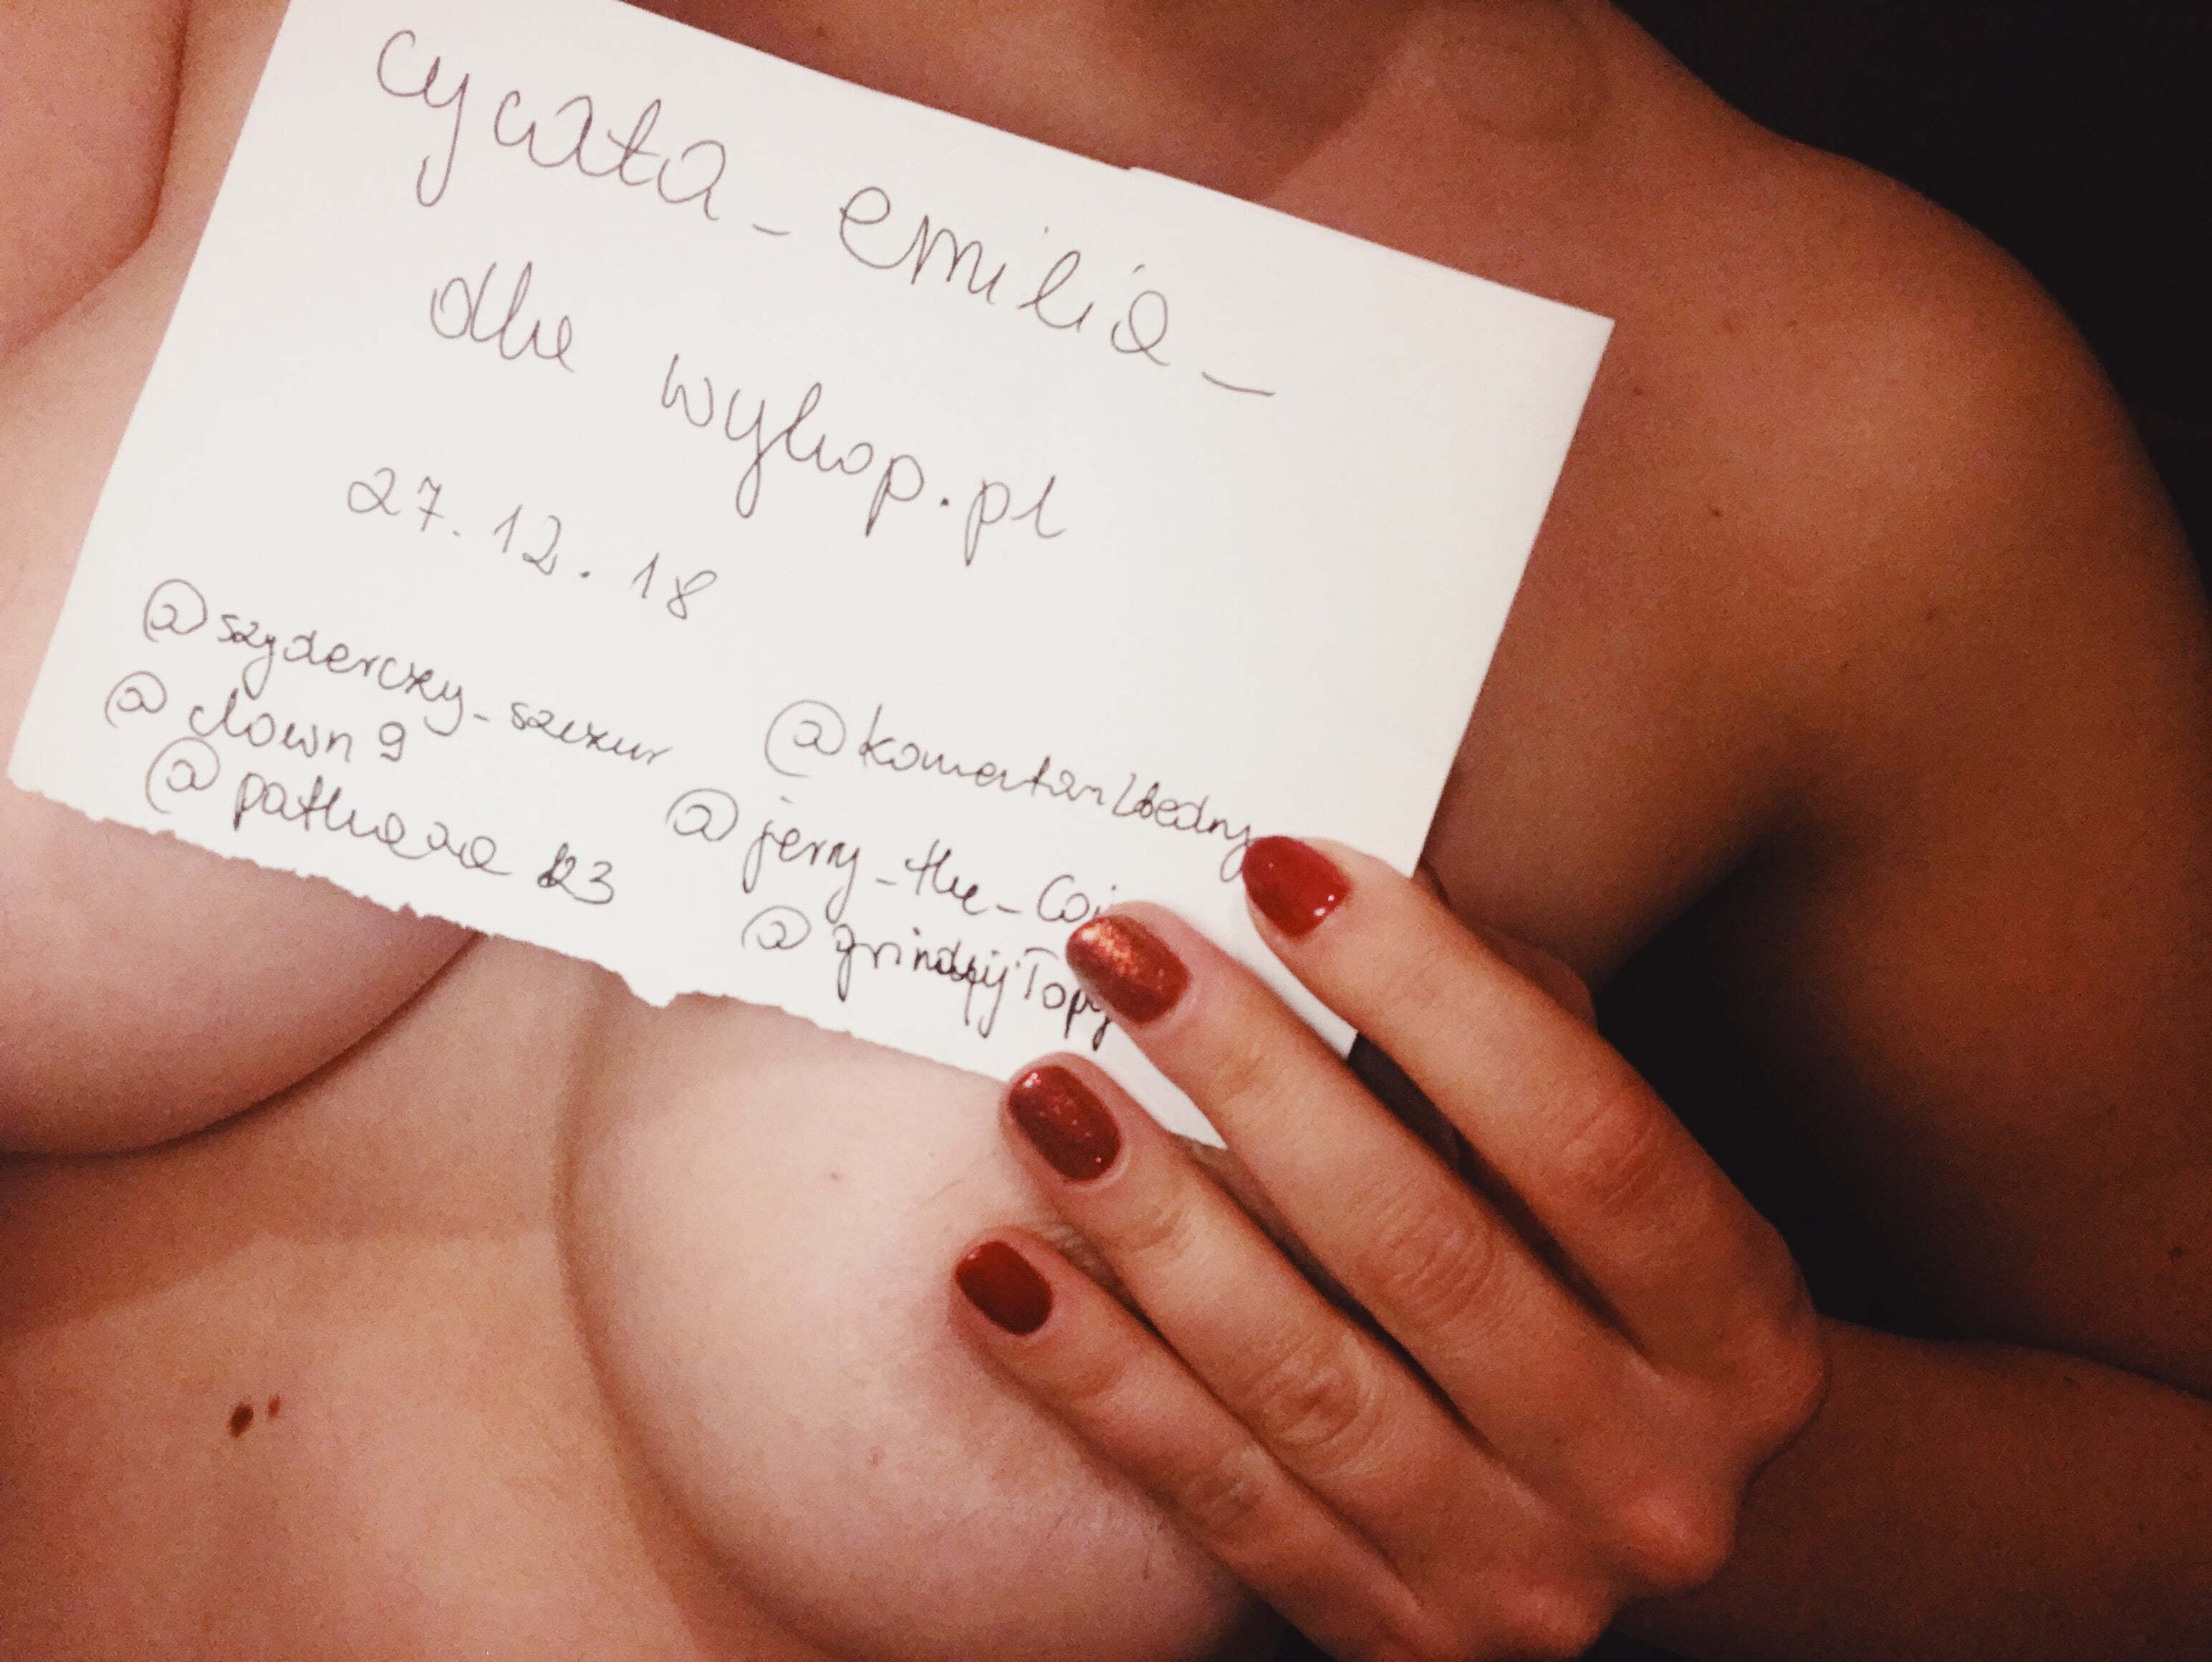 cycata_emilia_
dla wykop.pl
27.12.18
@szyderczy_szczur
@clown9
@patka_za 123
@komentarzbiedny
@jerry_the_Coi
@grindujTopy